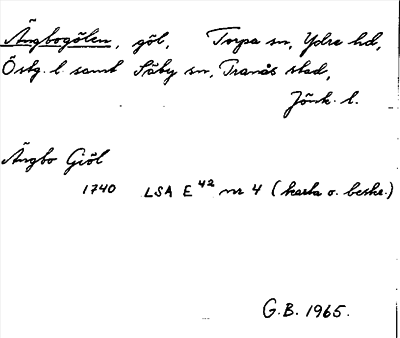 Ängbogölen, göl, Torpa sn, Ydre hd,
Östg. l. samt Säby sn, Tranås stad,
Jönk. l.
Ängbo Giöl
1740 LSA E 42 nr 4 (karta o. beskr.)
G.B. 1965.